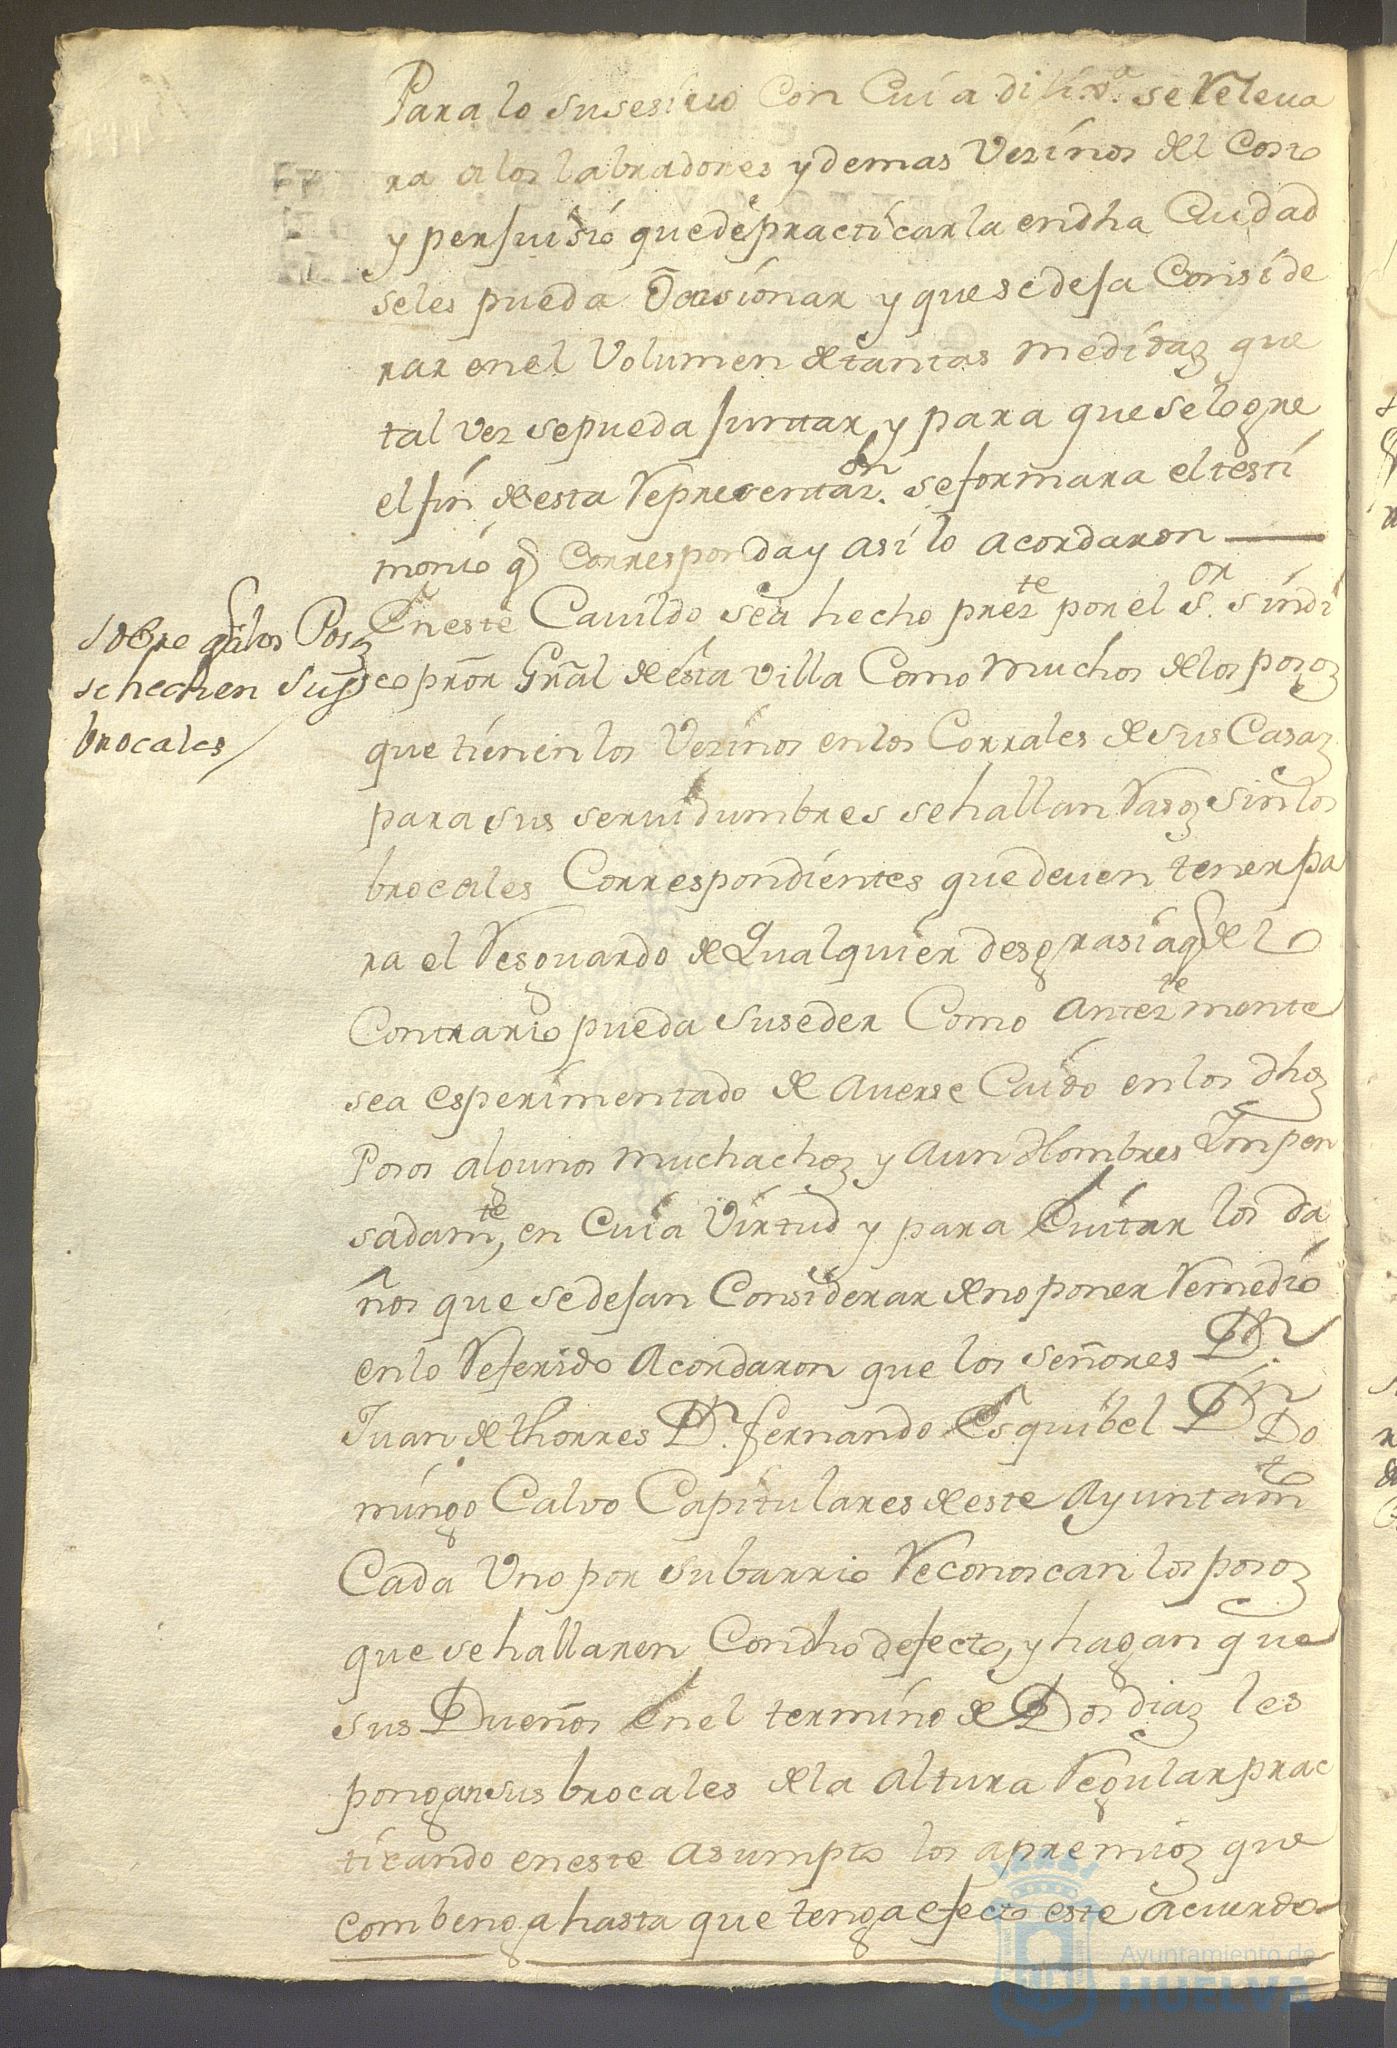 Para lo susesivo con Cuia dilixª. se Releva
ra a los labradores y demas Vezinos del Costo
y persuisio que de practicarla en dha Ciudad
seles pueda Ocasionar y que se deja Conside
rar en el Volumen de tantas medidas que
tal vez se pueda juntar y para que se logre
el fin de esta Representaz.on se formara el testi
monio q Corresponda y asi lo acordaron
Sobre q los Posos
se hechen sus
brocales
En este Cavildo sea hecho prezte por el S.or Sindi
co pror Gral de esta villa Como muchos de los posos
que tienen los Vezinos en los Corrales de sus Casas
para sus servidumbres se hallan Rasos sin los
brocales Correspondientes que deven tener pa
ra el Resguardo de Qualquier desgrasia q de lo
Contrario pueda suseder Como anterte mente
sea esperimentado de averse Caido en los dhos
Posos algunos muchachos y aun Hombres Impen
sadamte, en Cuia Virtud y para Evitar los da
ños que se dejan Considerar de no poner Remedio
en lo Referido Acordaron que los señores Dn.
Juan de thorres Dn. fernando Esquibel Dn Do
mingo Calvo Capitulares de este Ayuntamto
Cada Uno por su barrio Reconoscan los posos
que se hallaren Con dho defecto, y hagan que
sus Dueños en el termino de Dos dias les
pongan sus brocales de la Altura Regular prac
ticando en este asumpto los apremios que
combenga hasta que tenga efecto este acuerdo
Ayuntamiento de
HUELVA